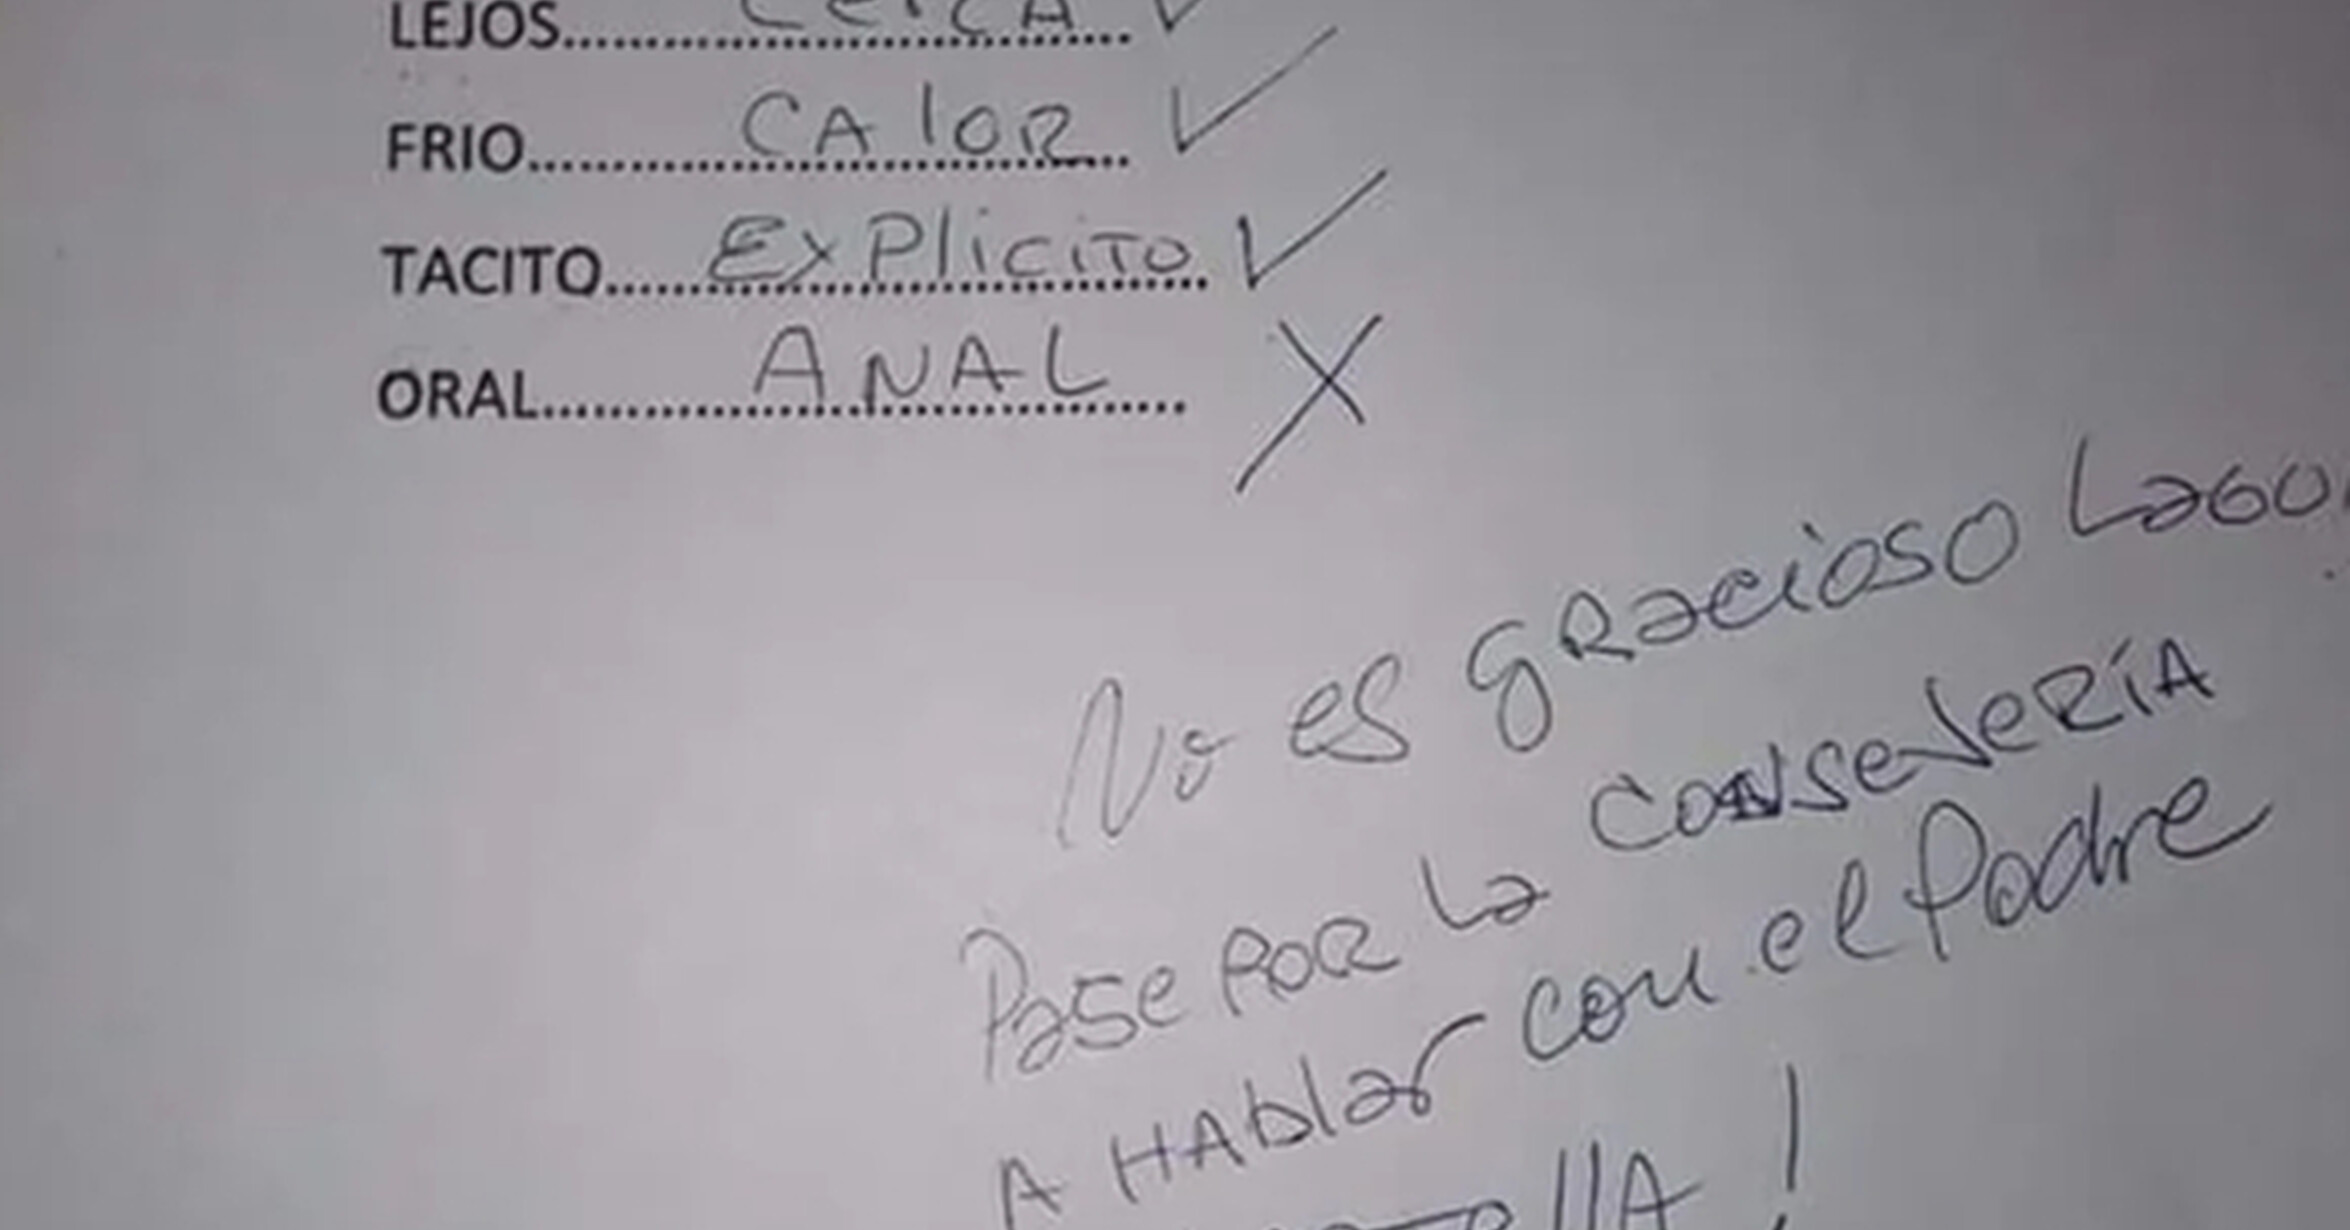 LEJOS........ CerCA
FRIO........ CAlOR
TACITO........ ExPliciTO
ORAL........ ANAL
No es gRacioso
Pase POR la consejeRíA
A HAblar con el Padre